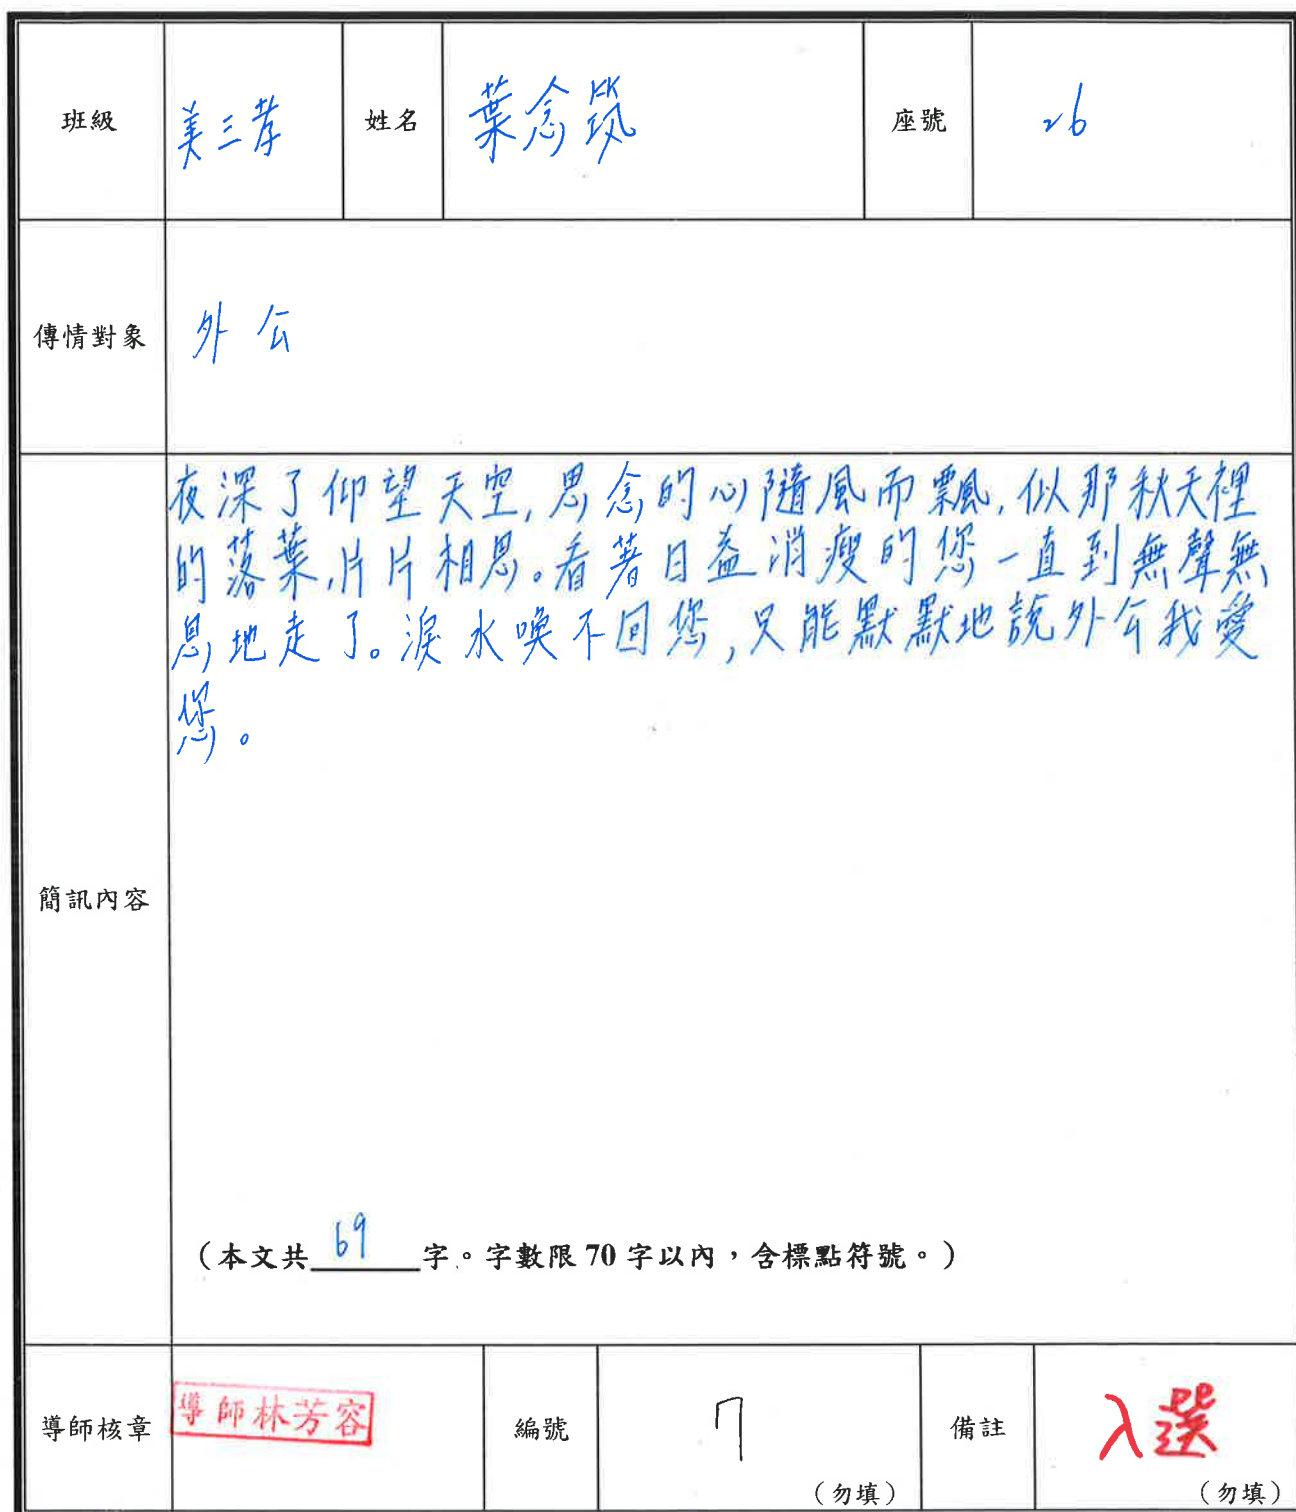 班級 美三孝 姓名 葉念筑 座號 26
傳情對象 外公
夜深了仰望天空,思念的心隨風而飄,似那秋天裡
的落葉,片片相思。看著日益消瘦的您一直到無聲無
息地走了。淚水喚不回您,只能默默地說外公我愛
您。
簡訊內容
(本文共 69 字。字數限 70 字以內,含標點符號。)
導師核章 導師林芳容 編號 7 (勿填) 備註 入選 (勿填)